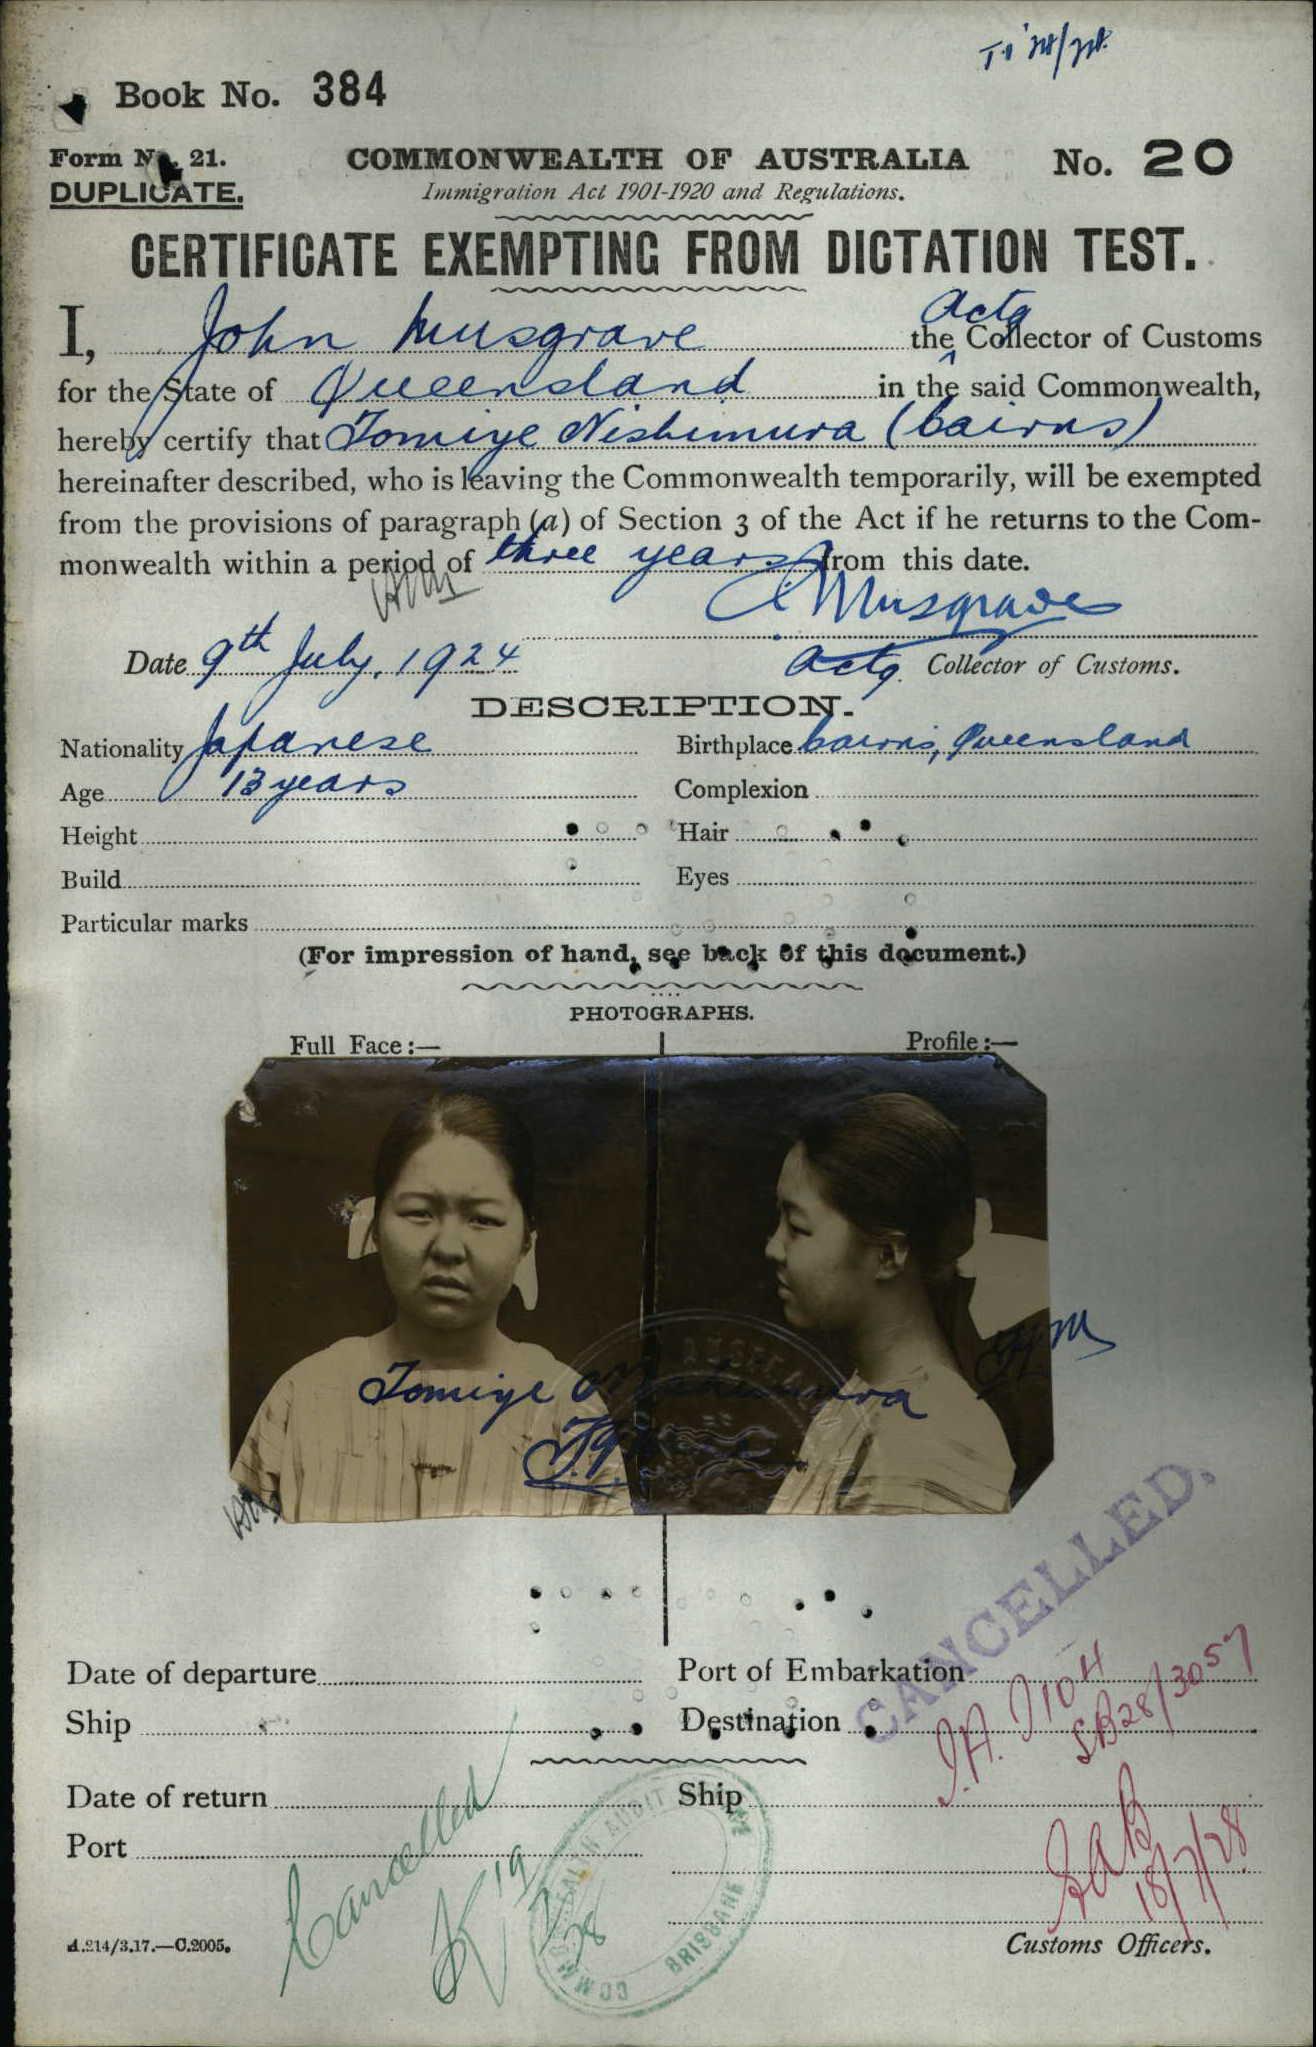 Book No. 384
Form No. 21.
DUPLICATE.
COMMONWEALTH OF AUSTRALIA
No. 20
Immigration Act 1901-1920 and Regulations.
CERTIFICATE EXEMPTING FROM DICTATION TEST.
I, John Musgrave the Actg Collector of Customs
for the State of Queensland in the said Commonwealth,
hereby certify that Tomiye Nishimura (Cairns)
hereinafter described, who is leaving the Commonwealth temporarily, will be exempted
from the provisions of paragraph (a) of Section 3 of the Act if he returns to the Com-
monwealth within a period of three years from this date.
Musgrave
Date 9th July, 1924
Actg. Collector of Customs.
DESCRIPTION.
Nationality Japanese
Birthplace Cairns, Queensland
Age 13 years
Complexion
Height
Hair
Build
Eyes
Particular marks
(For impression of hand, see back of this document.)
PHOTOGRAPHS.
Full Face:—
Profile:—
Tomiye Nishimura
CANCELLED.
Date of departure
Port of Embarkation
Ship
Destination
SB28/3057
Date of return
Ship
Port
Cancelled
19/7/28
COMMONWEALTH AUDIT
BRISBANE
18/7/28
A.214/3.17.—C.2005.
Customs Officers.